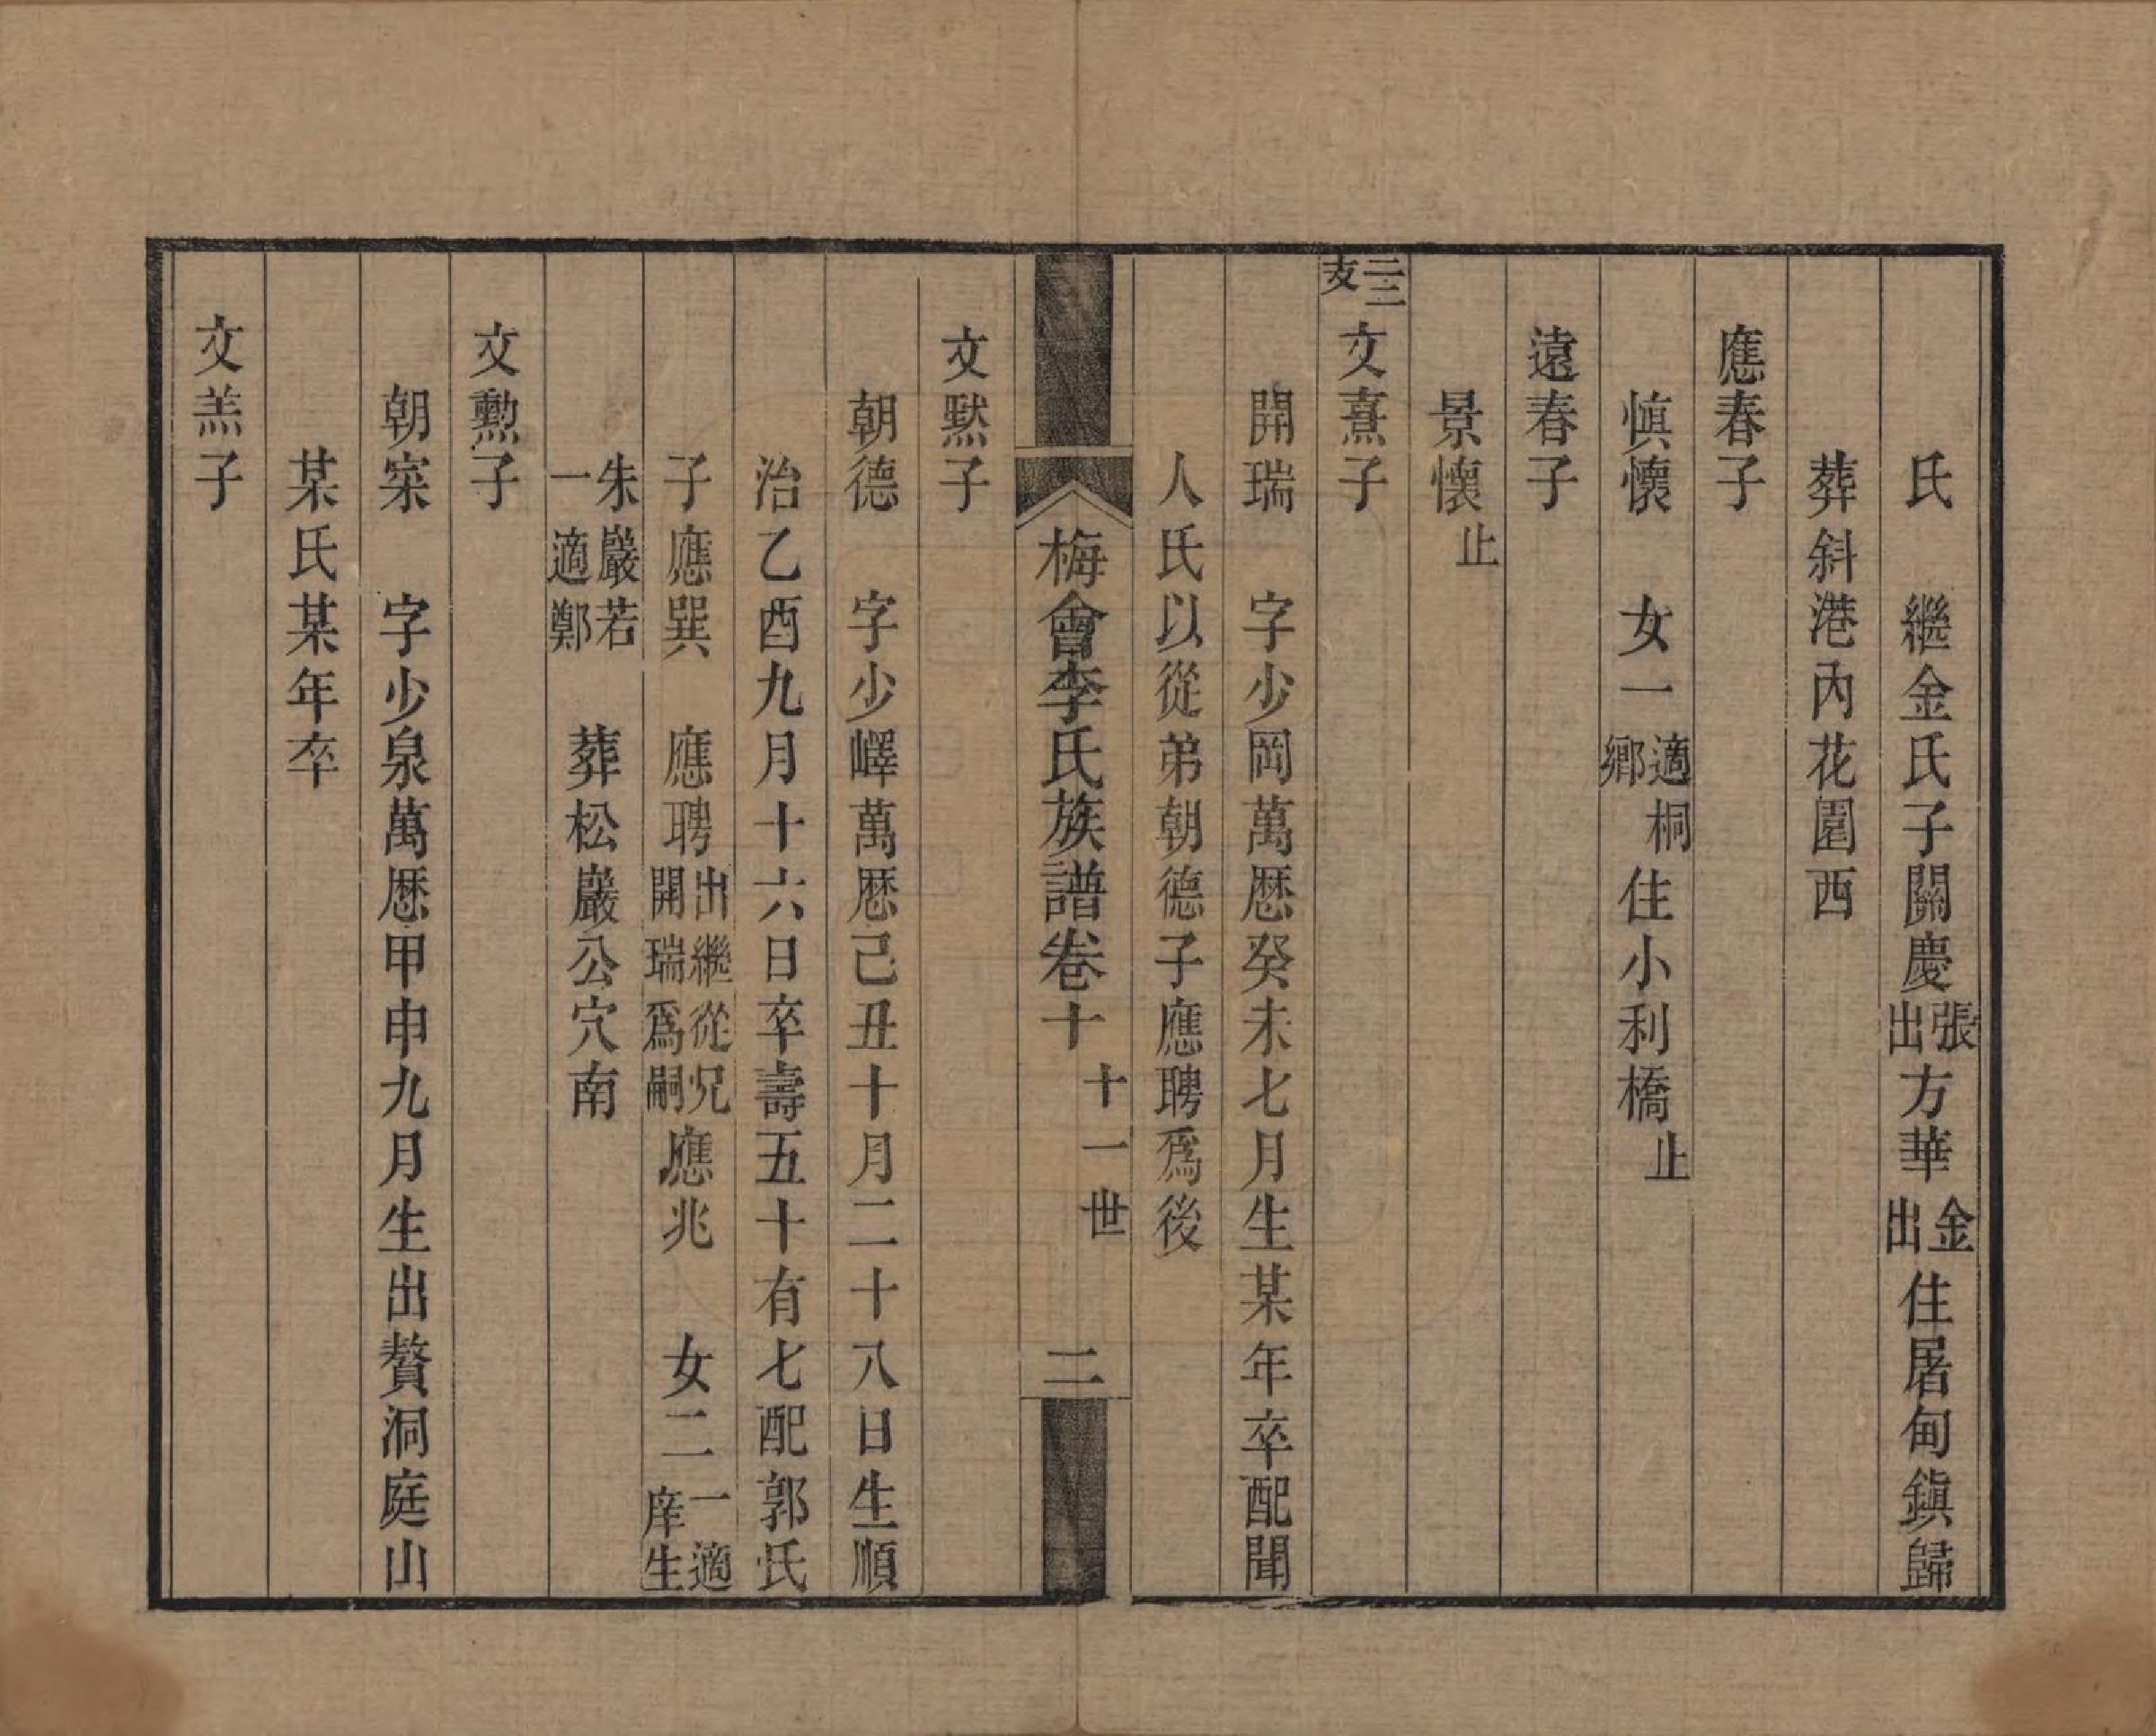 氏　繼金氏子關慶張出方華金出住屠甸鎮歸
葬斜港內花園西
應春子
慎懷　女一適桐鄉住小利橋止
遠春子
景懷止
二三支文熹子
開瑞　字少岡萬厯癸未七月生某年卒配聞
人氏以從弟朝德子應聘爲後
梅會李氏族譜卷十　十一世　二
文默子
朝德　字少嶧萬厯己丑十月二十八日生順
治乙酉九月十六日卒壽五十有七配郭氏
子應巽　應聘出繼從兄開瑞爲嗣應兆　女二一適庠生
朱巖若一適鄭　葬松巖公穴南
文勲子
朝寀　字少泉萬厯甲申九月生出贅洞庭山
某氏某年卒
文羔子